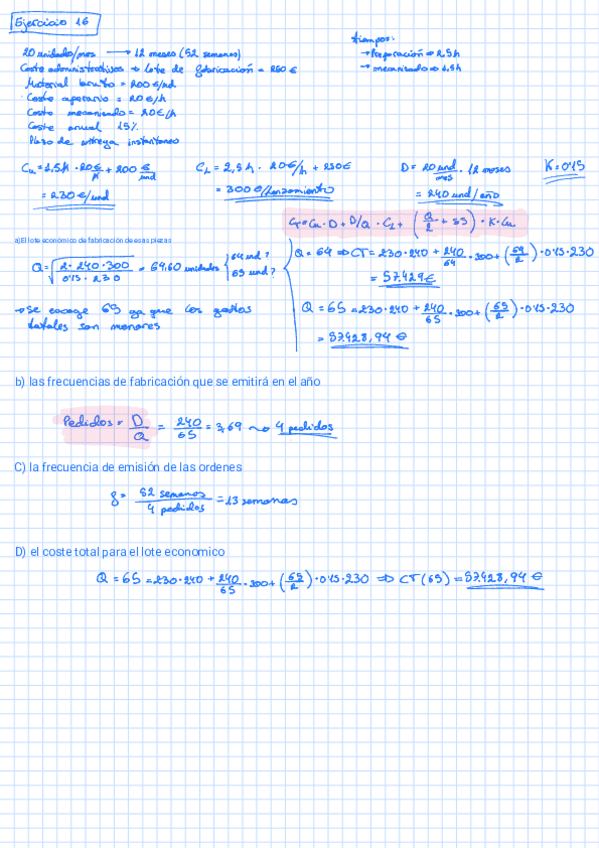 Ejercicio 16
20 unidades/mes → 12 meses (52 semanas)
tiempos:
→ Preparación → 2,5h
→ mecanizado → 1,5h
Coste administrativos → lote de fabricación = 250 €
Material bruto = 200 €/ud
Coste operario = 20 €/h
Coste mecanizado = 20 €/h
Coste anual 15%
Plazo de entrega instantáneo
Cu = 1,5h · 20 €/h + 200 €/und
= 230 €/und
CL = 2,5h · 20€/h + 250€
= 300 €/lanzamiento
D = 20 und/mes · 12 meses
= 240 und/año
K = 0'15
CT = Cu · D + D/Q · CL + (Q/2 + SS) · K · Cu
a) El lote económico de fabricación de esas piezas
Q = √(2 · 240 · 300 / 0'15 · 230) = 64,60 unidades
64 und?
65 und?
Q = 64 ⇒ CT = 230·240 + 240/64 · 300 + (64/2) · 0'15 · 230
= 57.429 €
→ se escoge 65 ya que los gastos
totales son menores
Q = 65 = 230·240 + 240/65 · 300 + (65/2) · 0'15 · 230
= 57.428,94 €
b) las frecuencias de fabricación que se emitirá en el año
Pedidos = D/Q = 240/65 = 3,69 → 4 pedidos
C) la frecuencia de emisión de las ordenes
f = 52 semanas / 4 pedidos = 13 semanas
D) el coste total para el lote economico
Q = 65 = 230·240 + 240/65 · 300 + (65/2) · 0'15 · 230 ⇒ CT(65) = 57.428,94 €